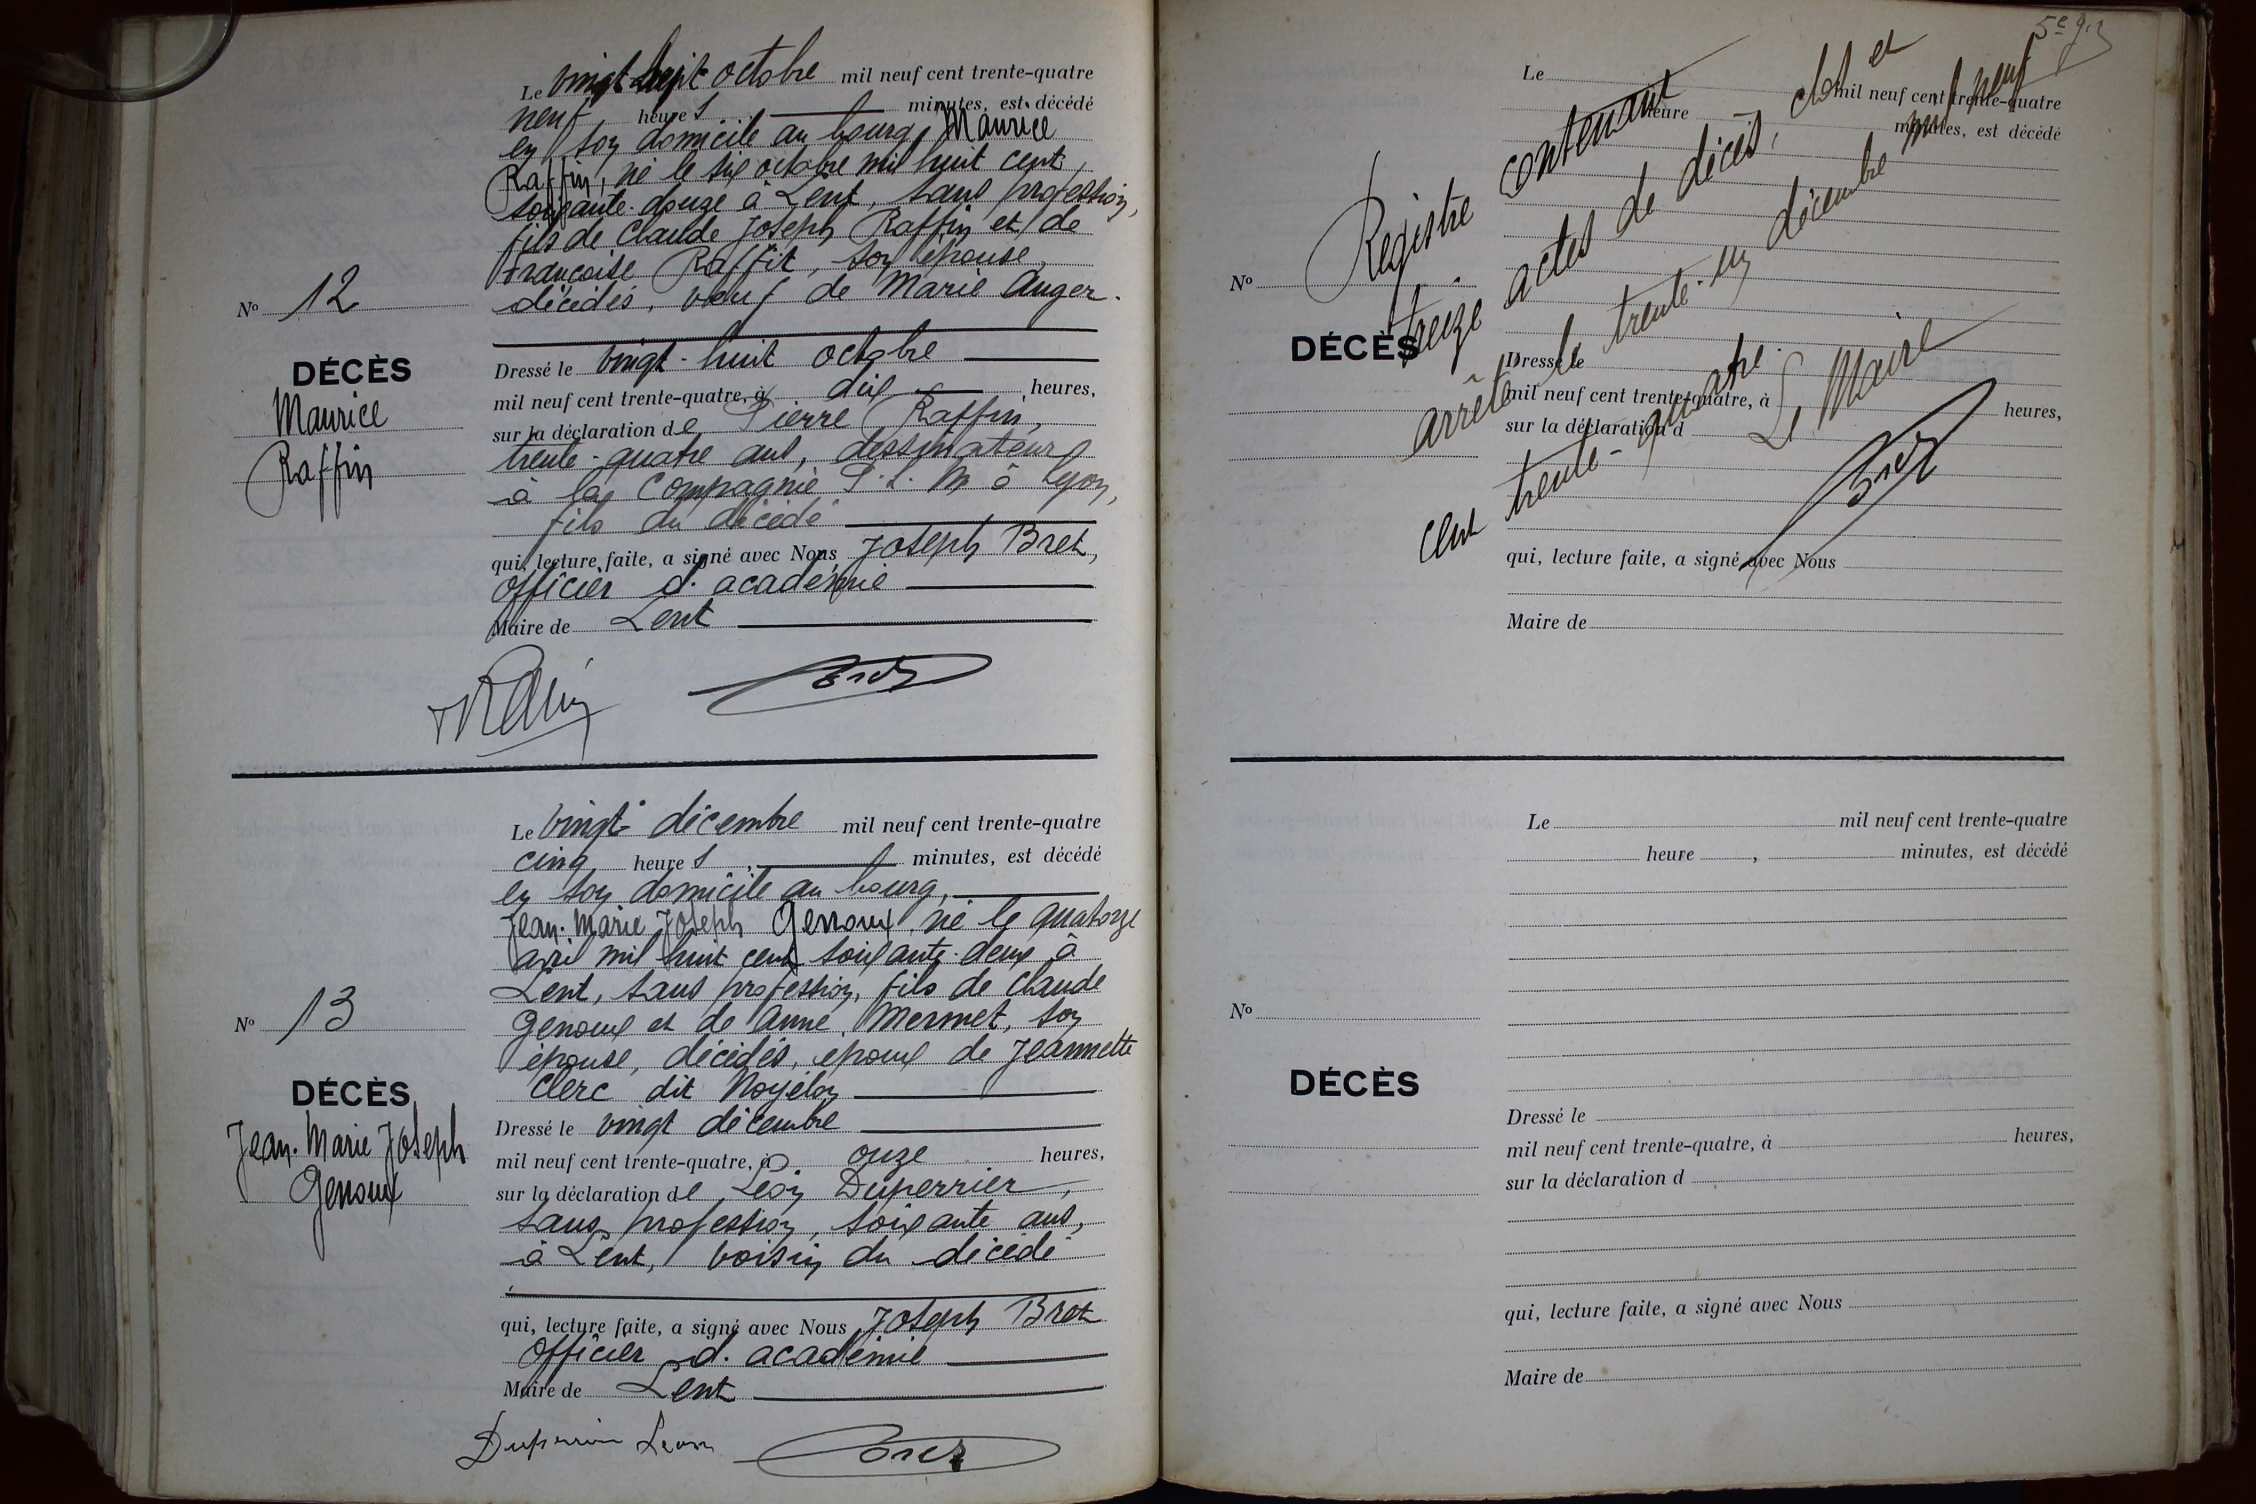 Le vingt-sept octobre mil neuf cent trente-quatre
neuf heures minutes, est décédé
en son domicile au bourg, Maurice
Raffin, né le six octobre mil huit cent
soixante-douze à Lent, sans profession,
fils de Claude Joseph Raffin et de
Françoise Raffit, son épouse,
décédés, veuf de Marie Auger.
No 12
DÉCÈS
Maurice
Raffin
Dressé le vingt-huit octobre
mil neuf cent trente-quatre, à dix heures,
sur la déclaration de Pierre Raffin,
trente-quatre ans, dessinateur
à la Compagnie P.L.M à Lyon,
fils du décédé
qui, lecture faite, a signé avec Nous Joseph Bret,
officier d'académie
Maire de Lent
Le vingt décembre mil neuf cent trente-quatre
cinq heures, minutes, est décédé
en son domicile au bourg,
Jean-Marie Joseph Genoux, né le quatorze
avril mil huit cent soixante-deux à
Lent, sans profession, fils de Claude
Genoux et de Anne Mermet, son
épouse, décédés, époux de Jeannette
Clerc dit Noyelon
No 13
DÉCÈS
Jean-Marie Joseph
Genoux
Dressé le vingt décembre
mil neuf cent trente-quatre, à onze heures,
sur la déclaration de Léon Duperrier,
sans profession, soixante ans,
à Lent, voisin du décédé
qui, lecture faite, a signé avec Nous Joseph Bret
officier d'académie
Maire de Lent
Duperrier Léon
5e
Le mil neuf cent trente-quatre
heure minutes, est décédé
Registre contenant
treize actes de décès, clos et
arrêté le trente-un décembre mil neuf
cent trente-quatre.
Le Maire
No
DÉCÈS
Dressé le
mil neuf cent trente-quatre, à heures,
sur la déclaration d
qui, lecture faite, a signé avec Nous
Maire de
Le mil neuf cent trente-quatre
heure , minutes, est décédé
No
DÉCÈS
Dressé le
mil neuf cent trente-quatre, à heures,
sur la déclaration d
qui, lecture faite, a signé avec Nous
Maire de